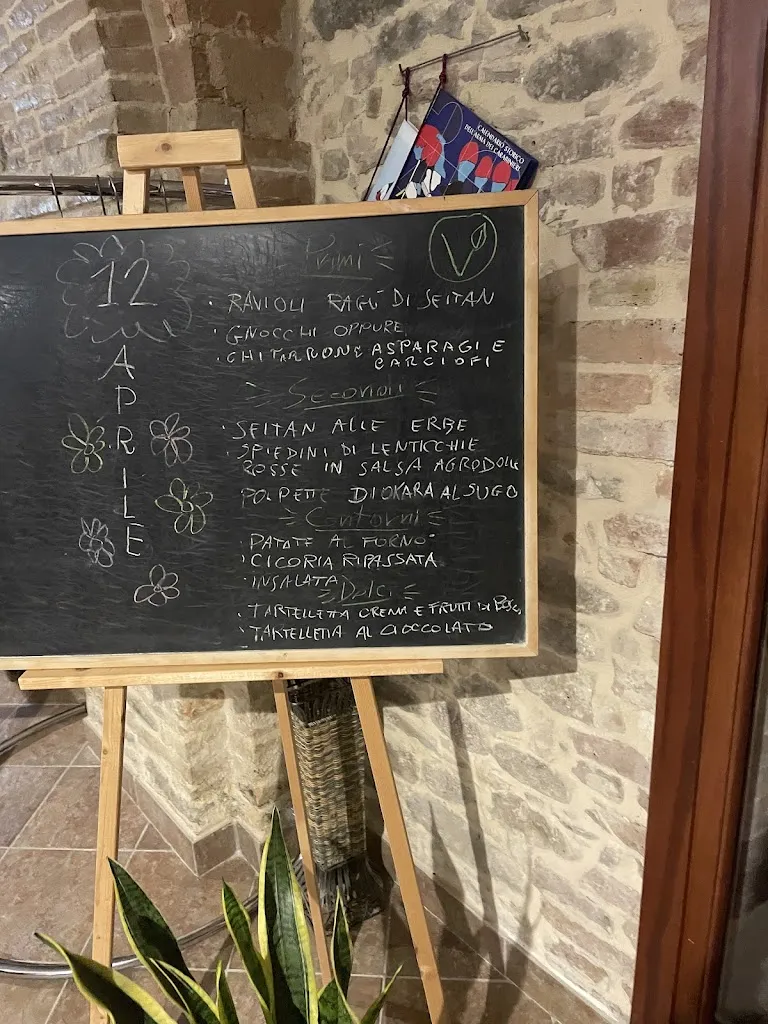 CALENDARIO STORICO
DELL'ARMA DEI CARABINIERI
12
APRILE
V
Primi
• RAVIOLI RAGÙ DI SEITAN
• GNOCCHI OPPURE
• CHITARRONE ASPARAGI E
CARCIOFI
Secondi
• SEITAN ALLE ERBE
• SPIEDINI DI LENTICCHIE
ROSSE IN SALSA AGRODOLCE
POLPETTE DI OKARA AL SUGO
Contorni
• PATATE AL FORNO
• CICORIA RIPASSATA
• INSALATA
Dolci
• TARTELLETTA CREMA E FRUTTI DI BOSCO
• TARTELLETTA AL CIOCCOLATO